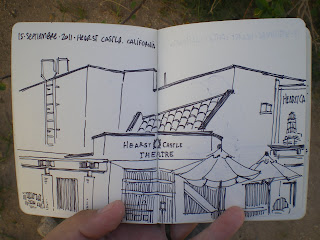 15·SEPTIEMBRE·2011·HEARST CASTLE. CALIFORNIA
HEARST CA
HEARST CASTLE
THEATRE